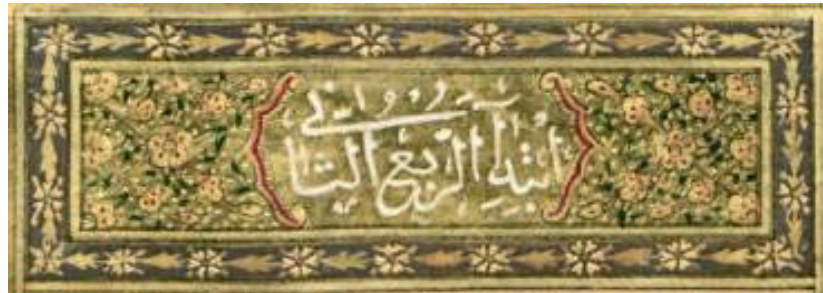 ابتداء الربع الثانی